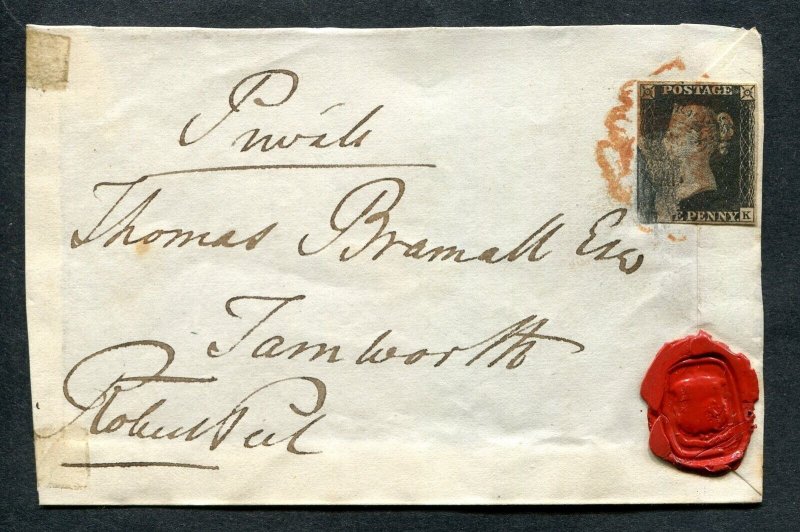 Private
POSTAGE
Thomas Bramall Esq
E PENNY K
Tamworth
Robert Peel